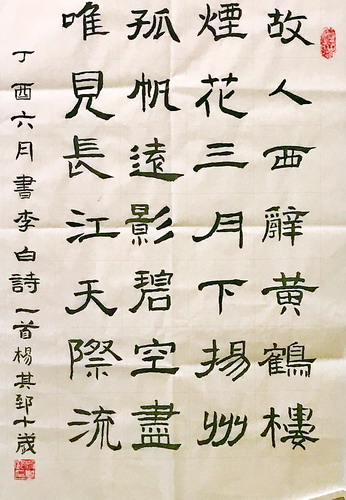 故人西辭黃鶴樓
煙花三月下揚州
孤帆遠影碧空盡
唯見長江天際流
丁酉六月書李白詩一首楊其郢十歲